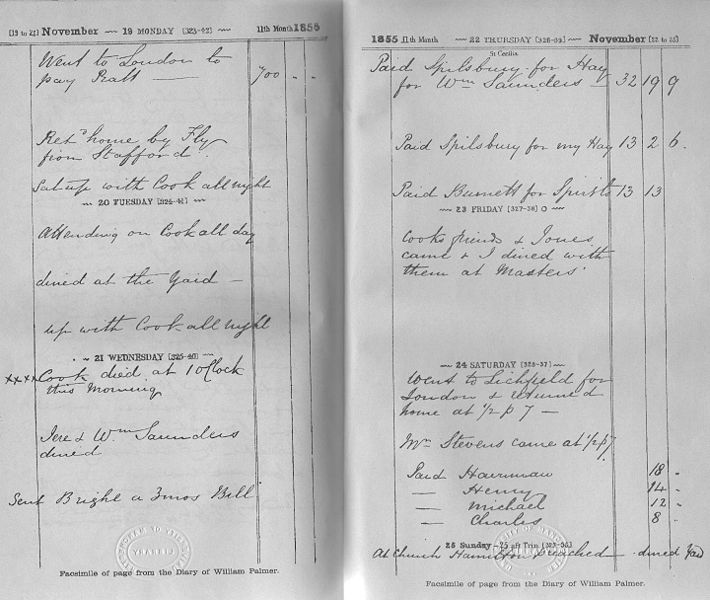 (19 to 24) November ~~ 19 MONDAY [323-42] ~~ 11th Month 1855
Went to London to
pay Pratt — 700 - -
Retd home by Fly
from Stafford.
Sat up with Cook all night
~~ 20 TUESDAY [324-41] ~~
Attending on Cook all day
dined at the Yard —
up with Cook all night
~~ 21 WEDNESDAY [325-40] ~~
xxxx Cook died at 1 o'Clock
this Morning
Jere & Wm Saunders
dined
Sent Bright a 3mos Bill
Facsimile of page from the Diary of William Palmer.
1855 11th Month ~~ 22 THURSDAY [326-39] ~~ November [22 to 25]
St Cecilia
Paid Spilsbury for Hay
for Wm Saunders — 32 19 9
Paid Spilsbury for my Hay 13 2 6.
Paid Burnett for Spirits 13 13
~~ 23 FRIDAY [327-38] O ~~
Cooks friends & Jones
came & I dined with
them at Masters'
~~ 24 SATURDAY [328-37] ~~
Went to Lichfield for
London & returned
home at 1/2 p 7 —
Mr Stevens came at 1/2 p 7
Paid Hawman 18 -
— Henry 14 -
— Michael 12 -
— Charles 8 -
25 Sunday — 25 aft Trin. [329-36]
At Church Hamilton Preached - dined Yard
Facsimile of page from the Diary of William Palmer.